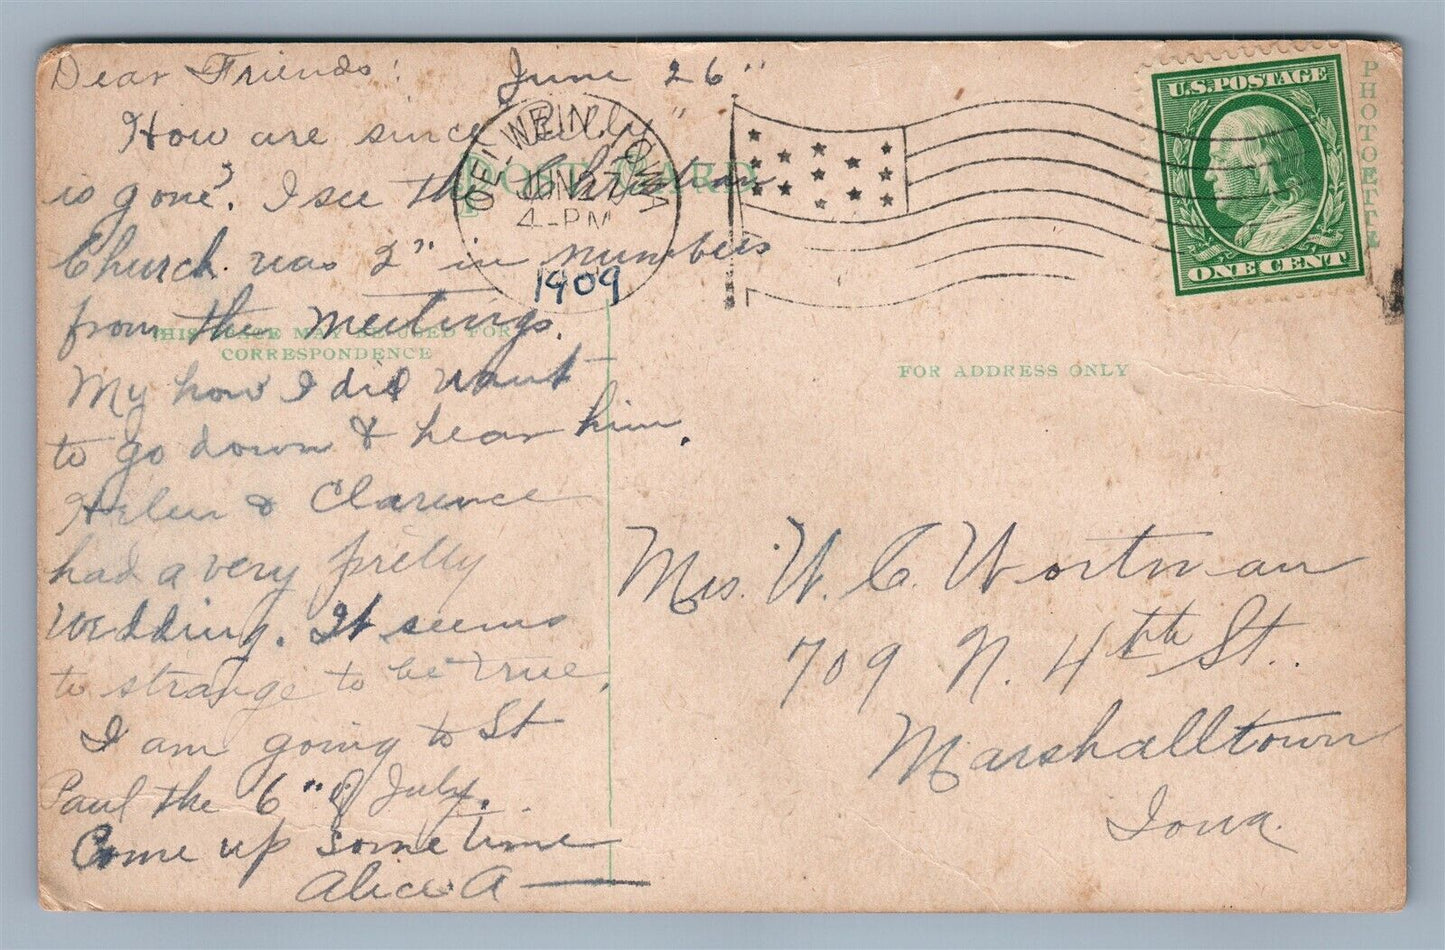 Dear Friends! June 26"
How are since "Billy"
is gone? I see the Christian
Church was 2" in numbers
from the Meetings.
My how I did want
to go down & hear him.
Helen & Clarence
had a very pretty
Wedding. It seems
to strange to be true.
I am going to St
Paul the 6" of July.
Come up sometime
Alice A
POST CARD
THIS SPACE MAY BE USED FOR
CORRESPONDENCE
OELWEIN, IOWA
JUN 27
4-PM
1909
U.S. POSTAGE
ONE CENT
FOR ADDRESS ONLY
Mrs. W. C. Wortman
709 N. 4th St.
Marshalltown
Iowa.